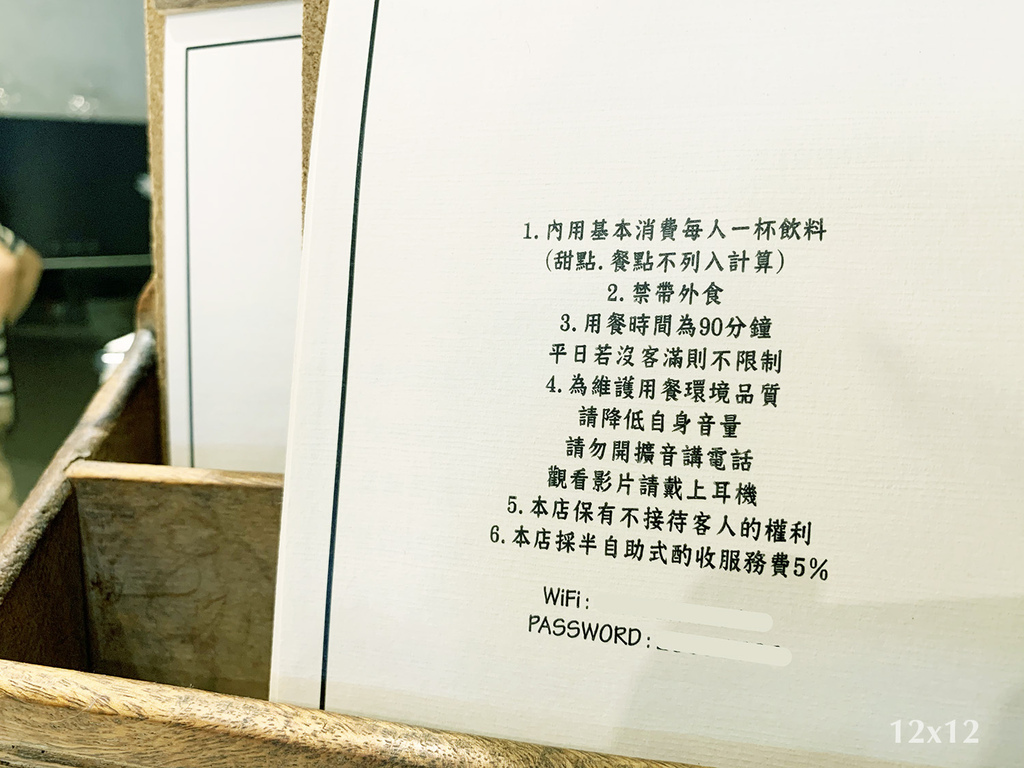 1.內用基本消費每人一杯飲料
(甜點.餐點不列入計算)
2.禁帶外食
3.用餐時間為90分鐘
平日若沒客滿則不限制
4.為維護用餐環境品質
請降低自身音量
請勿開擴音講電話
觀看影片請戴上耳機
5.本店保有不接待客人的權利
6.本店採半自助式酌收服務費5%
WiFi:
PASSWORD:
12x12